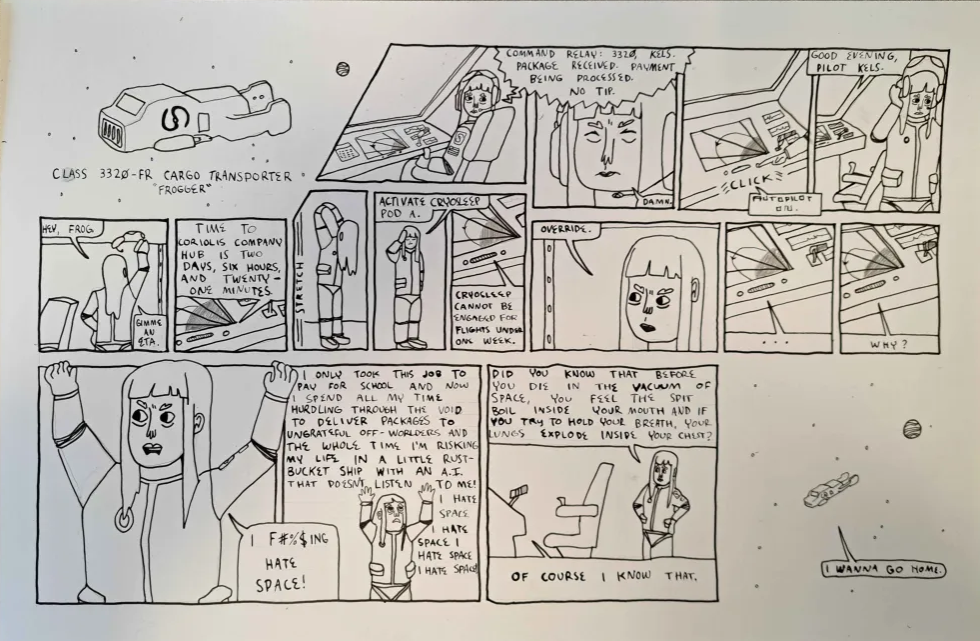 CLASS 3320-FR CARGO TRANSPORTER
"FROGGER"
COMMAND RELAY: 3320, KELS.
PACKAGE RECEIVED. PAYMENT
BEING PROCESSED.
NO TIP.
DAMN.
CLICK
AUTOPILOT
ON.
GOOD EVENING,
PILOT KELS.
HEY, FROG
GIMME
AN
ETA.
TIME TO
CORIOLIS COMPANY
HUB IS TWO
DAYS, SIX HOURS,
AND TWENTY-
ONE MINUTES.
STRETCH
ACTIVATE CRYOSLEEP
POD A.
CRYOSLEEP
CANNOT BE
ENGAGED FOR
FLIGHTS UNDER
ONE WEEK.
OVERRIDE.
...
...
WHY?
I F#%$ING
HATE
SPACE!
I ONLY TOOK THIS JOB TO
PAY FOR SCHOOL AND NOW
I SPEND ALL MY TIME
HURDLING THROUGH THE VOID
TO DELIVER PACKAGES TO
UNGRATEFUL OFF-WORLDERS AND
THE WHOLE TIME I'M RISKING
MY LIFE IN A LITTLE RUST-
BUCKET SHIP WITH AN A.I.
THAT DOESN'T LISTEN TO ME!
I HATE
SPACE
I HATE
SPACE I
HATE SPACE
I HATE SPACE!
DID YOU KNOW THAT BEFORE
YOU DIE IN THE VACUUM OF
SPACE, YOU FEEL THE SPIT
BOIL INSIDE YOUR MOUTH AND IF
YOU TRY TO HOLD YOUR BREATH, YOUR
LUNGS EXPLODE INSIDE YOUR CHEST?
OF COURSE I KNOW THAT.
I WANNA GO HOME.